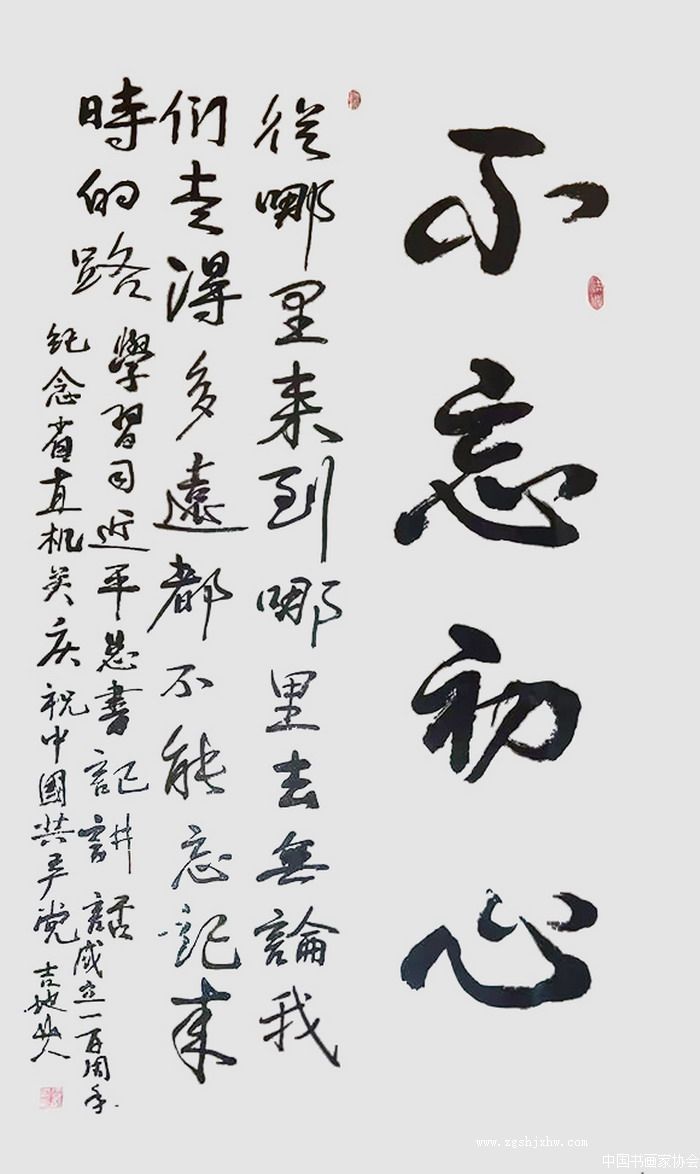 不忘初心
從哪里来到哪里去無論我
们走得多遠都不能忘記来
時的路
學習习近平总書記讲話
纪念省直机关庆祝中國共产党
成立一百周年
吉地山人
www.zgshjxhw.com
中国书画家协会